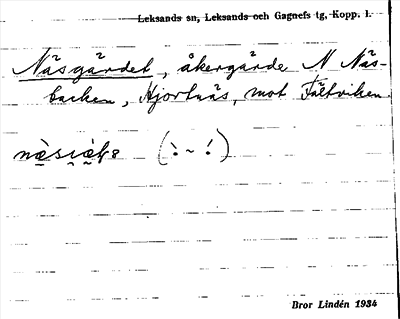 Leksands sn, Leksands och Gagnefs tg, Kopp. l.
Näsgärdet, åkergärde N Näs-
backen, Hjortnäs, mot Fältviken
Bror Lindén 1934